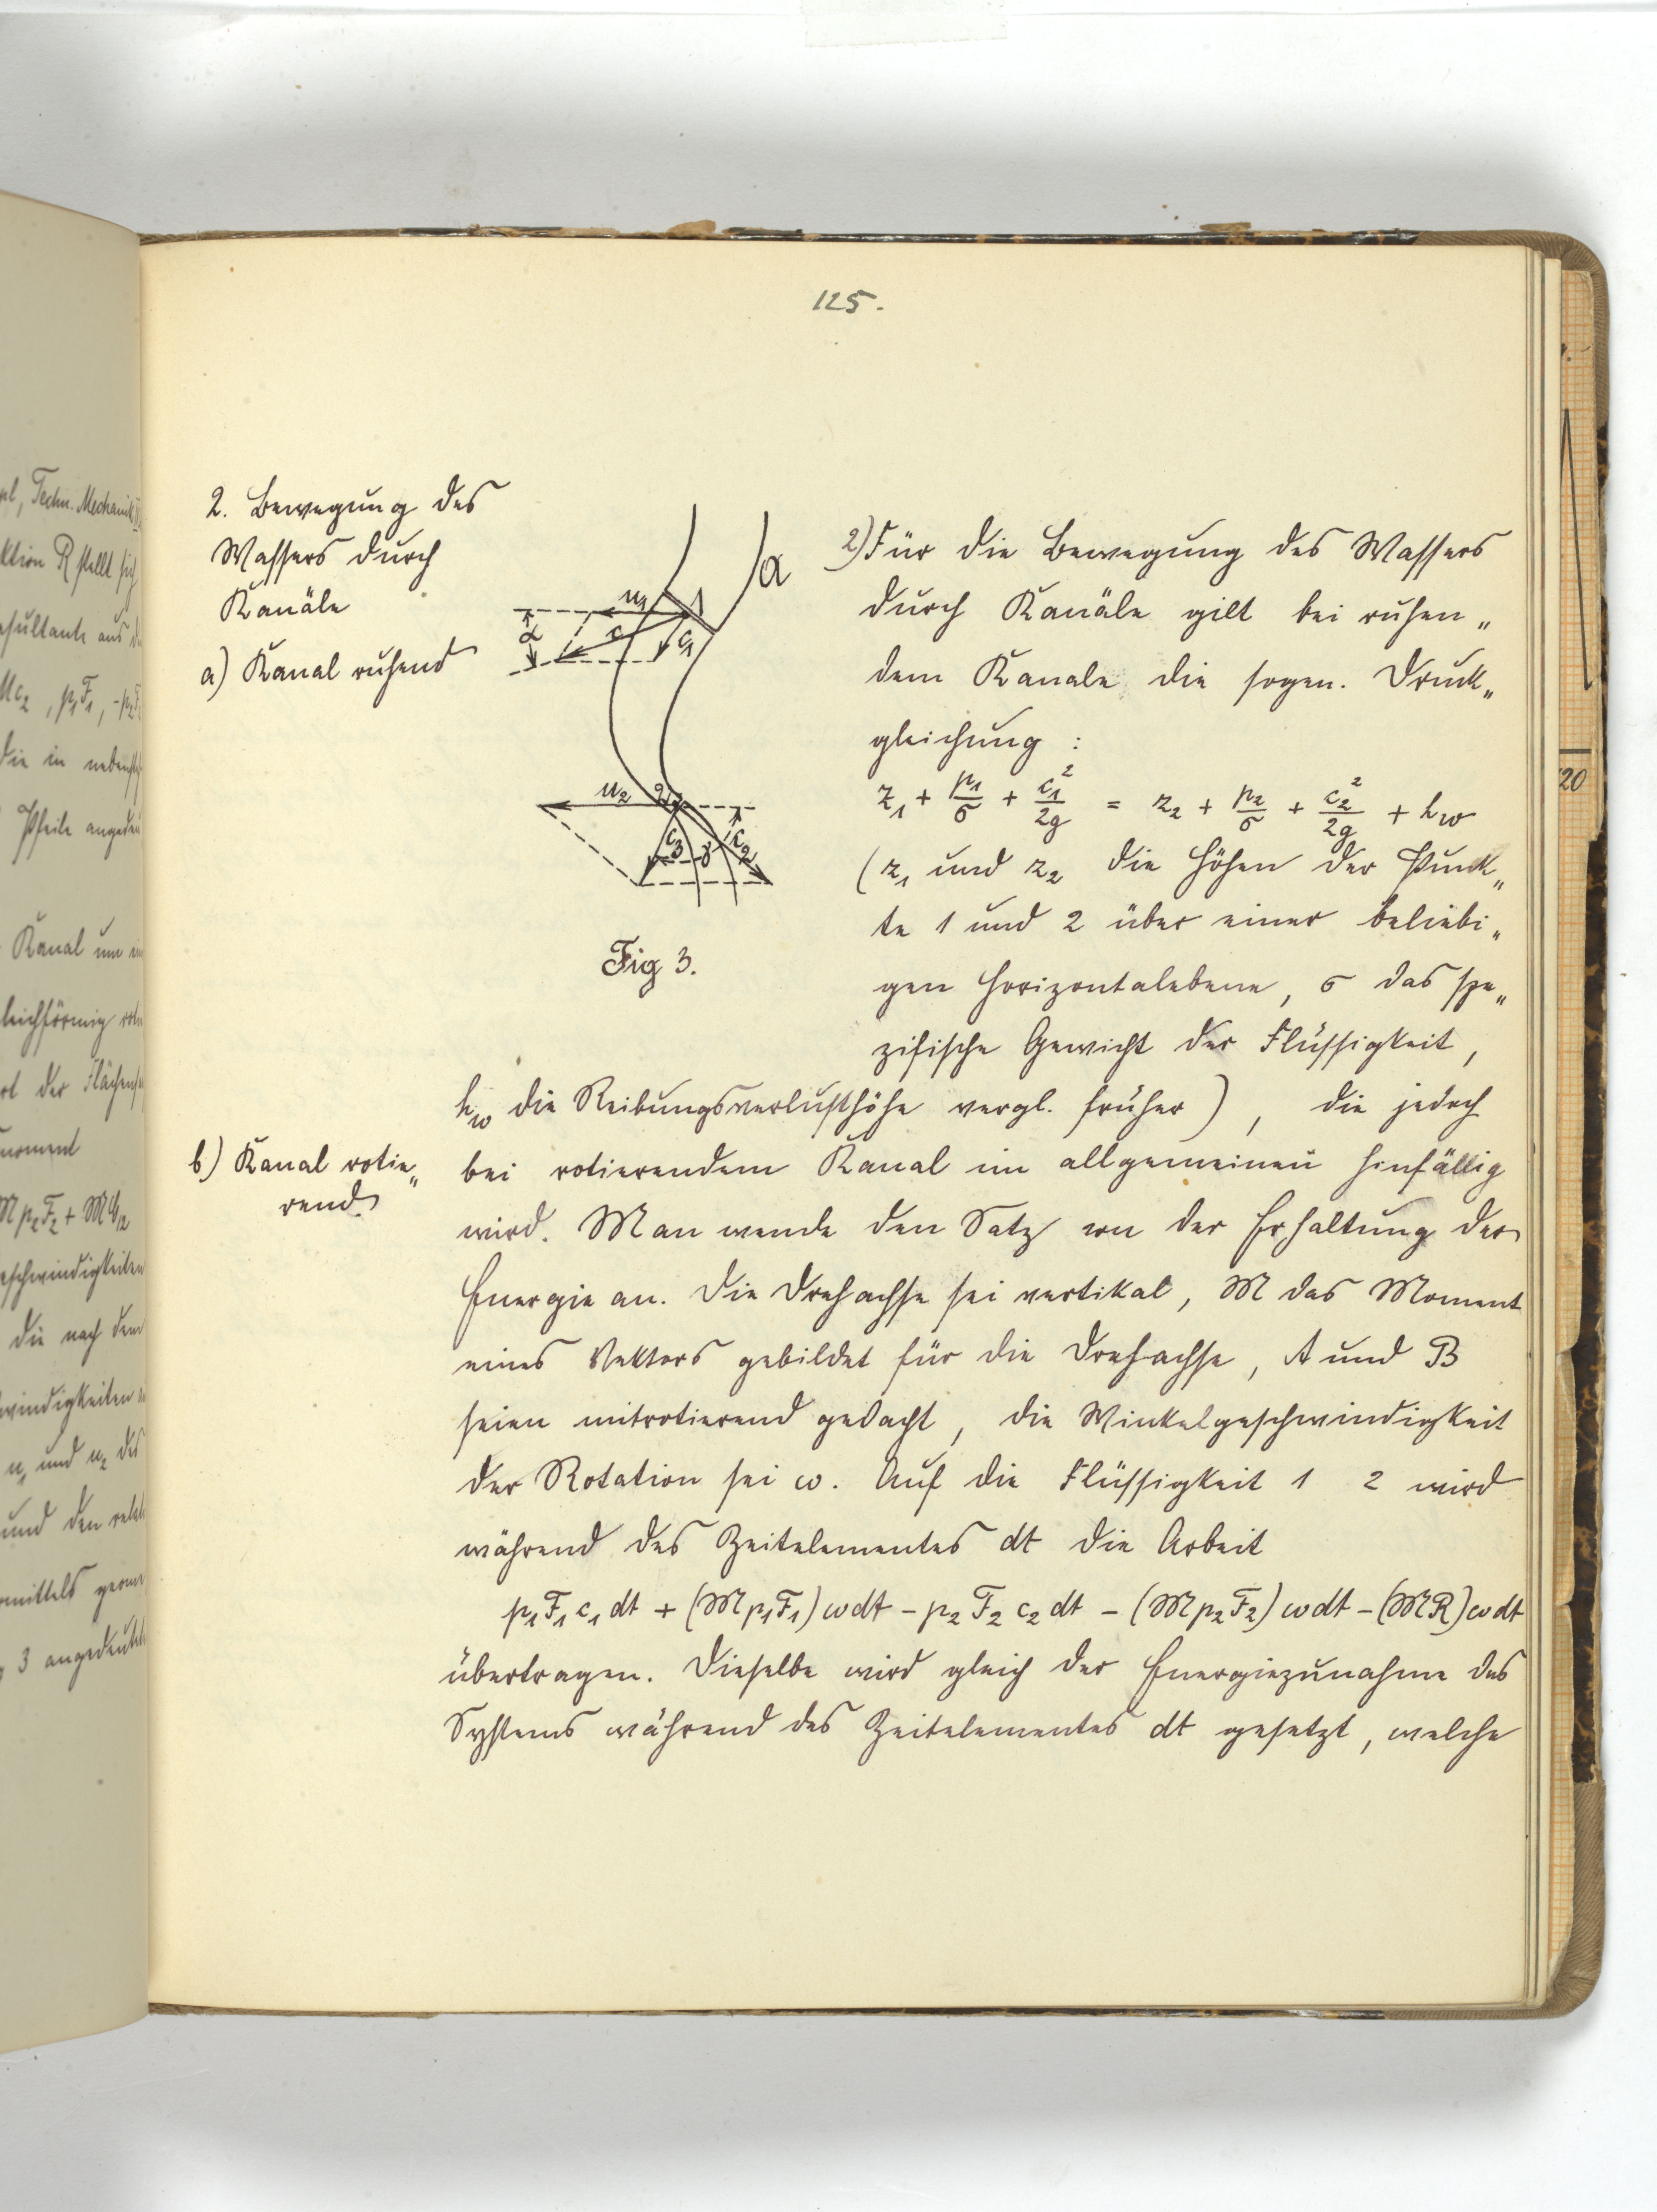 125.
2. Bewegung des
Wassers durch
Kanäle
a) Kanal ruhend
2) Für die Bewegung des Wassers
durch Kanäle gilt bei ruhen„
dem Kanale die sogen. Druck„
gleichung :
z₁ + p₁/σ + c₁²/2g = z₂ + p₂/σ + c₂²/2g + h_w
(z₁ und z₂ die Höhen der Punk„
te 1 und 2 über einer beliebi„
gen Horizontalebene, σ das spe„
zifische Gewicht der Flüssigkeit,
h_w die Reibungsverlusthöhe vergl. früher), die jedoch
b) Kanal rotie„
rend
bei rotierendem Kanal im allgemeinen hinfällig
wird. Man wende den Satz von der Erhaltung der
Energie an. Die Drehachse sei vertikal, M das Moment
eines Vektors gebildet für die Drehachse, A und B
seien mitrotierend gedacht, die Winkelgeschwindigkeit
der Rotation sei ω. Auf die Flüssigkeit 1 2 wird
während des Zeitelementes dt die Arbeit
p₁F₁c₁dt + (Mp₁F₁)ωdt - p₂F₂c₂dt - (Mp₂F₂)ωdt - (MR)ωdt
übertragen. Dieselbe wird gleich der Energiezunahme des
Systems während des Zeitelementes dt gesetzt, welche
u₁
α
c
c₁
1
a
u₂
2
c₂
γ
Fig 3.
Techn. Mechanik
R stellt sich
die in
Pfeile
Kanal um
der
moment
Mp₂F₂ +
die nach dem
u₁ und u₂ des
und den
mittels
3
20